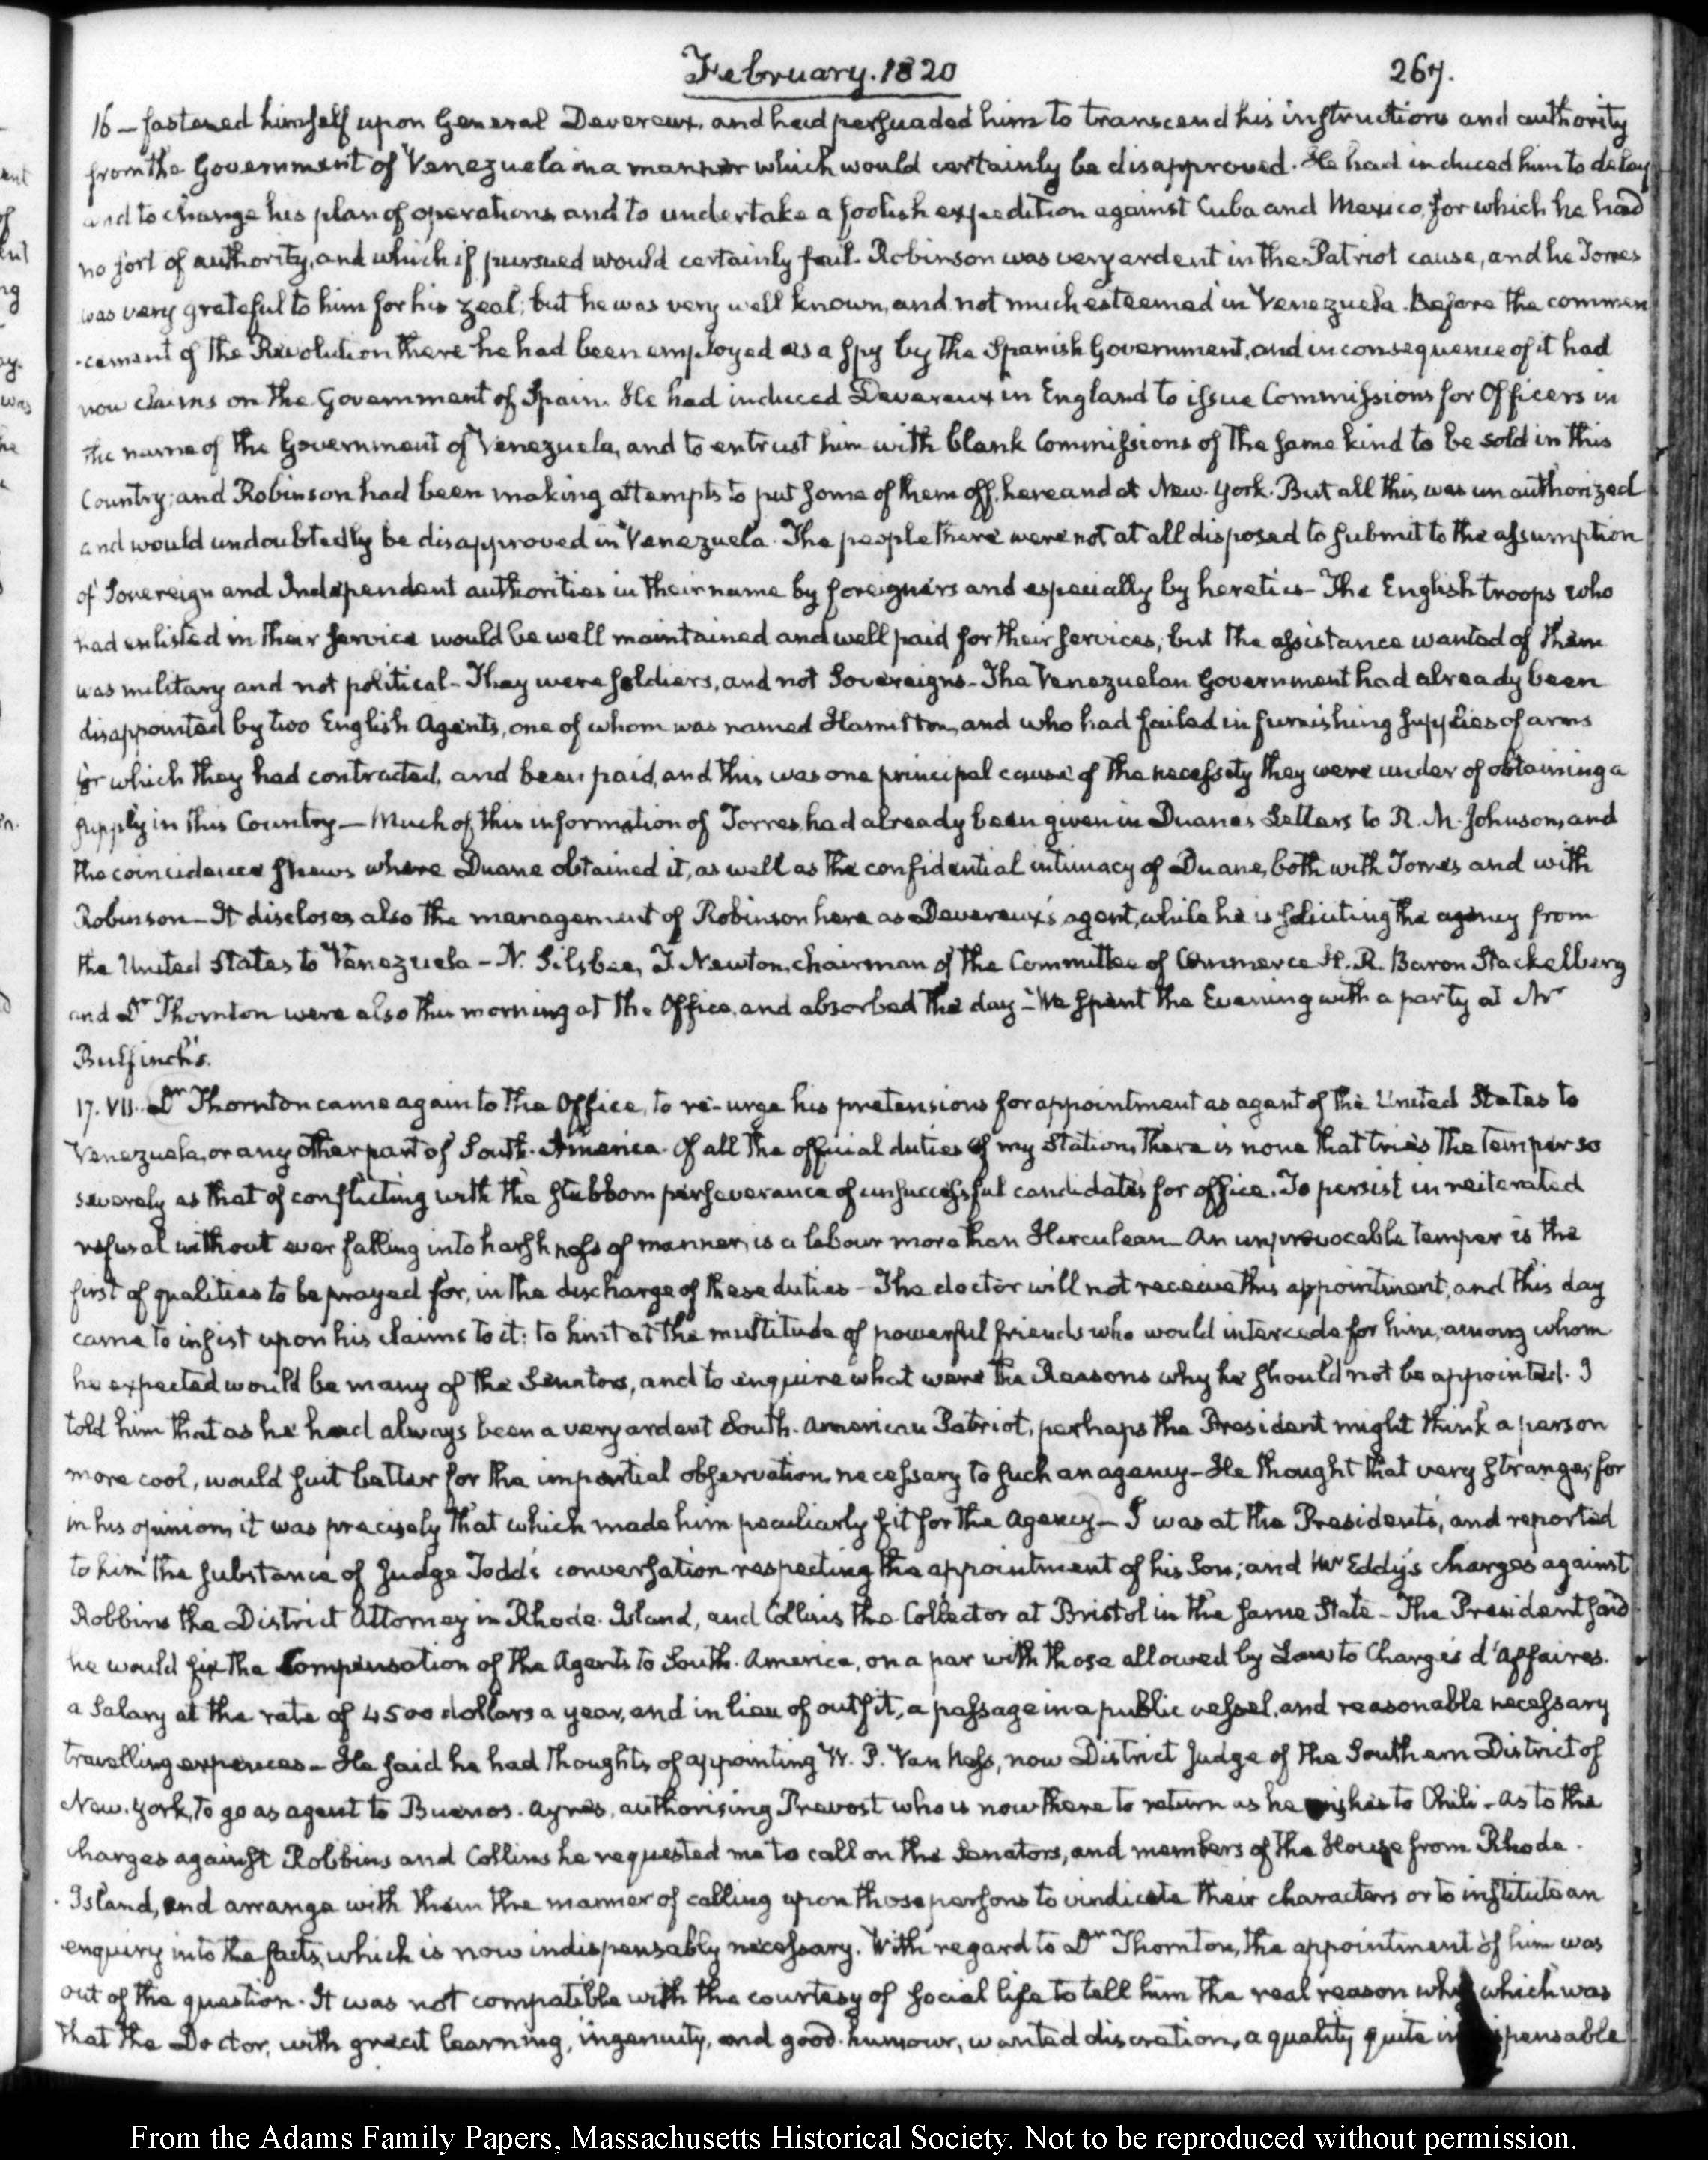 February. 1820
267.
16 — fastened himself upon General Devereux, and had persuaded him to transcend his instructions and authority
from the Government of Venezuela in a manner which would certainly be disapproved. He had induced him to delay
and to change his plan of operations, and to undertake a foolish expedition against Cuba and Mexico, for which he had
no sort of authority, and which if pursued would certainly fail. Robinson was very ardent in the Patriot cause, and he Torres
was very grateful to him for his zeal; but he was very well known, and not much esteemed in Venezuela. Before the commen
-cement of the Revolution there he had been employed as a spy by the Spanish Government, and in consequence of it had
now claims on the Government of Spain. He had induced Devereux in England to issue Commissions for Officers in
the name of the Government of Venezuela, and to entrust him with blank Commissions of the same kind to be sold in this
Country; and Robinson had been making attempts to put some of them off, here and at New-York. But all this was unauthorized
and would undoubtedly be disapproved in Venezuela. The people there were not at all disposed to submit to the assumption
of Sovereign and Independent authorities in their name by foreigners and especially by heretics — The English troops who
had enlisted in their service would be well maintained and well paid for their services; but the assistance wanted of them
was military and not political — They were soldiers, and not Sovereigns — The Venezuelan Government had already been
disappointed by two English Agents, one of whom was named Hamilton, and who had failed in furnishing supplies of arms
for which they had contracted, and been paid, and this was one principal cause of the necessity they were under of obtaining a
supply in this Country — Much of this information of Torres, had already been given in Duane's Letters to R. M. Johnson, and
the coincidence shews where Duane obtained it, as well as the confidential intimacy of Duane, both with Torres and with
Robinson — It discloses also the management of Robinson here as Devereux's agent, while he is soliciting the agency from
the United States to Venezuela — N. Silsbee, T. Newton, chairman of the Committee of Commerce H. R. Baron Stackelberg
and Dr Thornton were also this morning at the Office, and absorbed the day — We spent the Evening with a party at Mr
Bulfinch's.
17. VII. Dr Thornton came again to the Office, to re-urge his pretensions for appointment as agent of the United States to
Venezuela, or any other part of South-America. Of all the official duties of my Station, there is none that tries the temper so
severely as that of conflicting with the stubborn perseverance of unsuccessful candidates for office. To persist in reiterated
refusal without ever falling into harshness of manner, is a labour more than Herculean — An unprovocable temper is the
first of qualities to be prayed for, in the discharge of these duties — The doctor will not receive this appointment, and this day
came to insist upon his claims to it; to hint at the multitude of powerful friends who would intercede for him, among whom
he expected would be many of the Senators, and to enquire what were the Reasons why he should not be appointed. I
told him that as he had always been a very ardent South-American Patriot, perhaps the President might think a person
more cool, would suit better for the impartial observation, necessary to such an agency — He thought that very strange, for
in his opinion, it was precisely that which made him peculiarly fit for the Agency — I was at the President's, and reported
to him the substance of Judge Todd's conversation respecting the appointment of his Son; and Mr Eddy's charges against
Robbins the District Attorney in Rhode-Island, and Collins the Collector at Bristol in the same State — The President said
he would fix the Compensation of the Agents to South-America, on a par with those allowed by Law to Chargés d'Affaires.
a Salary at the rate of 4500 dollars a year, and in lieu of outfit, a passage in a public vessel, and reasonable necessary
travelling expences — He said he had thoughts of appointing W. P. Van Ness, now District Judge of the Southern District of
New-York, to go as agent to Buenos-Ayres, authorising Prevost who is now there to return as he wishes to Chili — As to the
charges against Robbins and Collins he requested me to call on the Senators, and members of the House from Rhode-
-Island, and arrange with them the manner of calling upon those persons to vindicate their characters or to institute an
enquiry into the facts, which is now indispensably necessary. With regard to Dr Thornton, the appointment of him was
out of the question. It was not compatible with the courtesy of social life to tell him the real reason why which was
that the Doctor, with great learning, ingenuity, and good-humour, wanted discretion, a quality quite indispensable
From the Adams Family Papers, Massachusetts Historical Society. Not to be reproduced without permission.